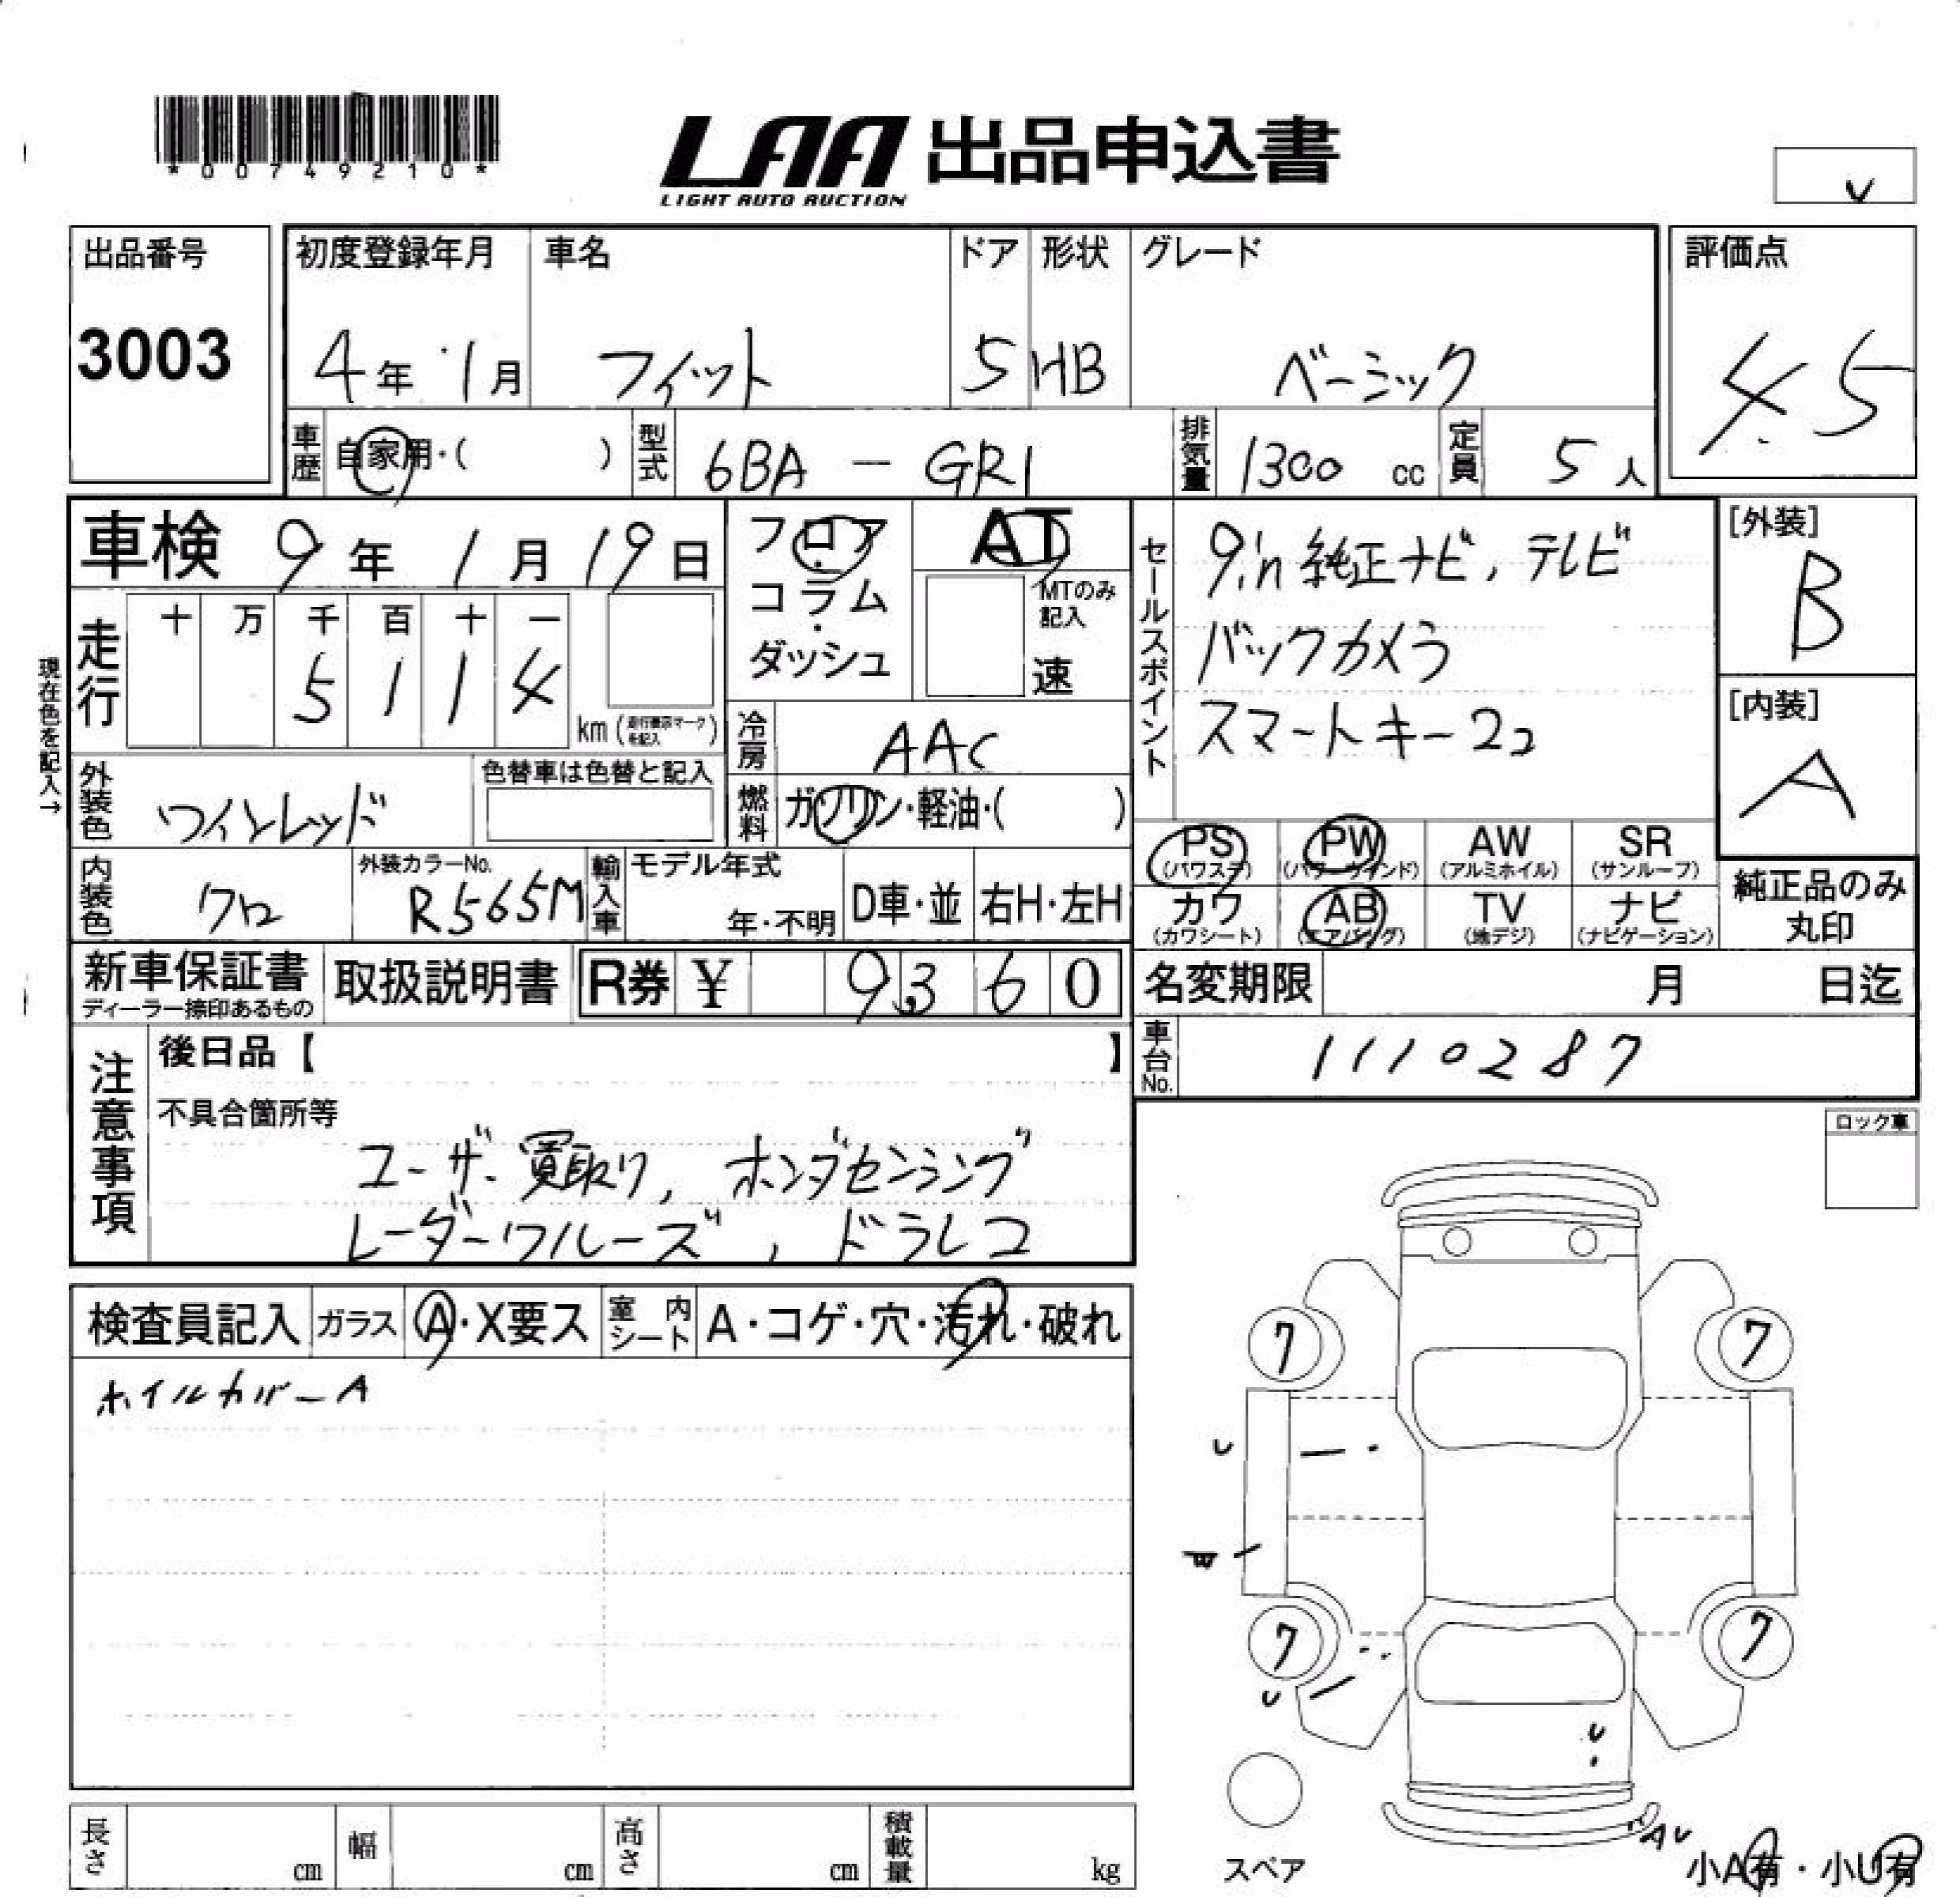 *00749210*
LAA 出品申込書
LIGHT AUTO AUCTION
出品番号
3003
初度登録年月 車名 ドア 形状 グレード
4年 1月 フィット 5 HB ベーシック
評価点
4.5
車歴 自家用・( ) 型式 6BA - GR1 排気量 1300 cc 定員 5人
車検 9年 1月 19日
フロア・コラム・ダッシュ
AT
MTのみ記入
速
走行 十 万 千 百 十 一
5 1 1 4
km (走行表示マークを記入)
現在色を記入→
冷房 AAC
燃料 ガソリン・軽油・( )
外装色 ワインレッド
色替車は色替と記入
内装色 クロ
外装カラーNo. R565M
輸入車 モデル年式
年・不明 D車・並 右H・左H
セールスポイント
9in 純正ナビ, テレビ
バックカメラ
スマートキー2コ
[外装]
B
[内装]
A
PS (パワステ) PW (パワーウインド) AW (アルミホイル) SR (サンルーフ)
カワ (カワシート) AB (エアバッグ) TV (地デジ) ナビ (ナビゲーション)
純正品のみ丸印
新車保証書
ディーラー捺印あるもの
取扱説明書
R券 ¥ 9,360
名変期限 月 日迄
車台No. 1110287
注意事項
後日品【 】
不具合箇所等
ユーザー買取り, ホンダセンシング
レーダークルーズ, ドラレコ
ロック車
検査員記入 ガラス A・X要ス 室内シート A・コゲ・穴・汚れ・破れ
ホイルカバーA
7 7
U
W
7 7
U
U
AU
スペア
小A有・小U有
長さ cm 幅 cm 高さ cm 積載量 kg